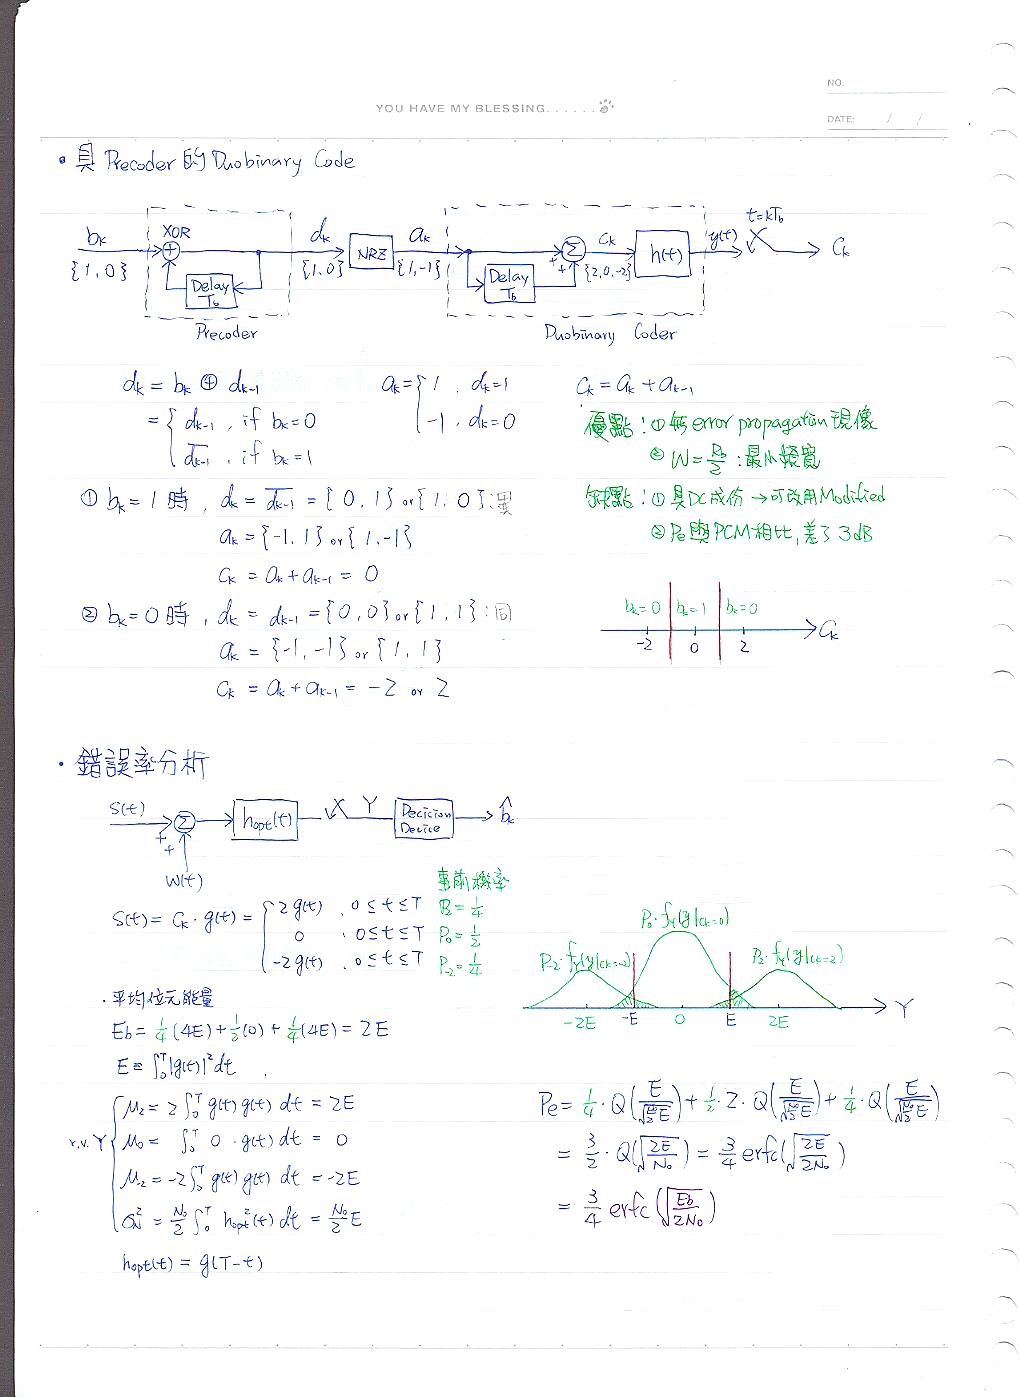 NO.
YOU HAVE MY BLESSING......
DATE: / /
• 具 Precoder 的 Duobinary Code
bk {1, 0} XOR dk {1, 0} NRZ ak {1, -1} Σ + + ck {2, 0, -2} h(t) y(t) t=kTb Ck
Delay Tb
Delay Tb
Precoder
Duobinary Coder
dk = bk ⊕ dk-1
= { dk-1 , if bk=0
\overline{dk-1} , if bk=1
ak = { 1 , dk=1
-1 , dk=0
Ck = ak + ak-1
優點:① 無 error propagation 現像
② W = Rb/2 : 最小頻寬
缺點:① 具DC成份 → 可改用Modified
② Pe與PCM相比,差了3dB
① bk = 1 時, dk = \overline{dk-1} = {0, 1} or {1, 0} :異
ak = {-1, 1} or {1, -1}
Ck = ak + ak-1 = 0
② bk = 0 時, dk = dk-1 = {0, 0} or {1, 1} :同
ak = {-1, -1} or {1, 1}
Ck = ak + ak-1 = -2 or 2
bk=0 bk=1 bk=0
-2 0 2 Ck
• 錯誤率分析
S(t) Σ + + hopt(t) Y Decicion Device b̂k
W(t)
事前機率
S(t) = Ck · g(t) = { 2g(t) , 0≤t≤T P2=1/4
0 , 0≤t≤T P0=1/2
-2g(t) , 0≤t≤T P-2=1/4
P-2·fY(y|ck=-2) P0·fY(y|ck=0) P2·fY(y|ck=2)
-2E -E 0 E 2E Y
· 平均位元能量
Eb = 1/4(4E) + 1/2(0) + 1/4(4E) = 2E
E ≡ ∫₀ᵀ |g(t)|² dt
r.v. Y { μ2 = 2∫₀ᵀ g(t) g(t) dt = 2E
μ0 = ∫₀ᵀ 0 · g(t) dt = 0
μ-2 = -2∫₀ᵀ g(t) g(t) dt = -2E
σN² = N0/2 ∫₀ᵀ hopt²(t) dt = N0/2 E
hopt(t) = g(T-t)
Pe = 1/4 · Q(E/√(N0/2 E)) + 1/2 · 2 · Q(E/√(N0/2 E)) + 1/4 · Q(E/√(N0/2 E))
= 3/2 · Q(√(2E/N0)) = 3/4 erfc(√(2E/2N0))
= 3/4 erfc(√(Eb/2N0))